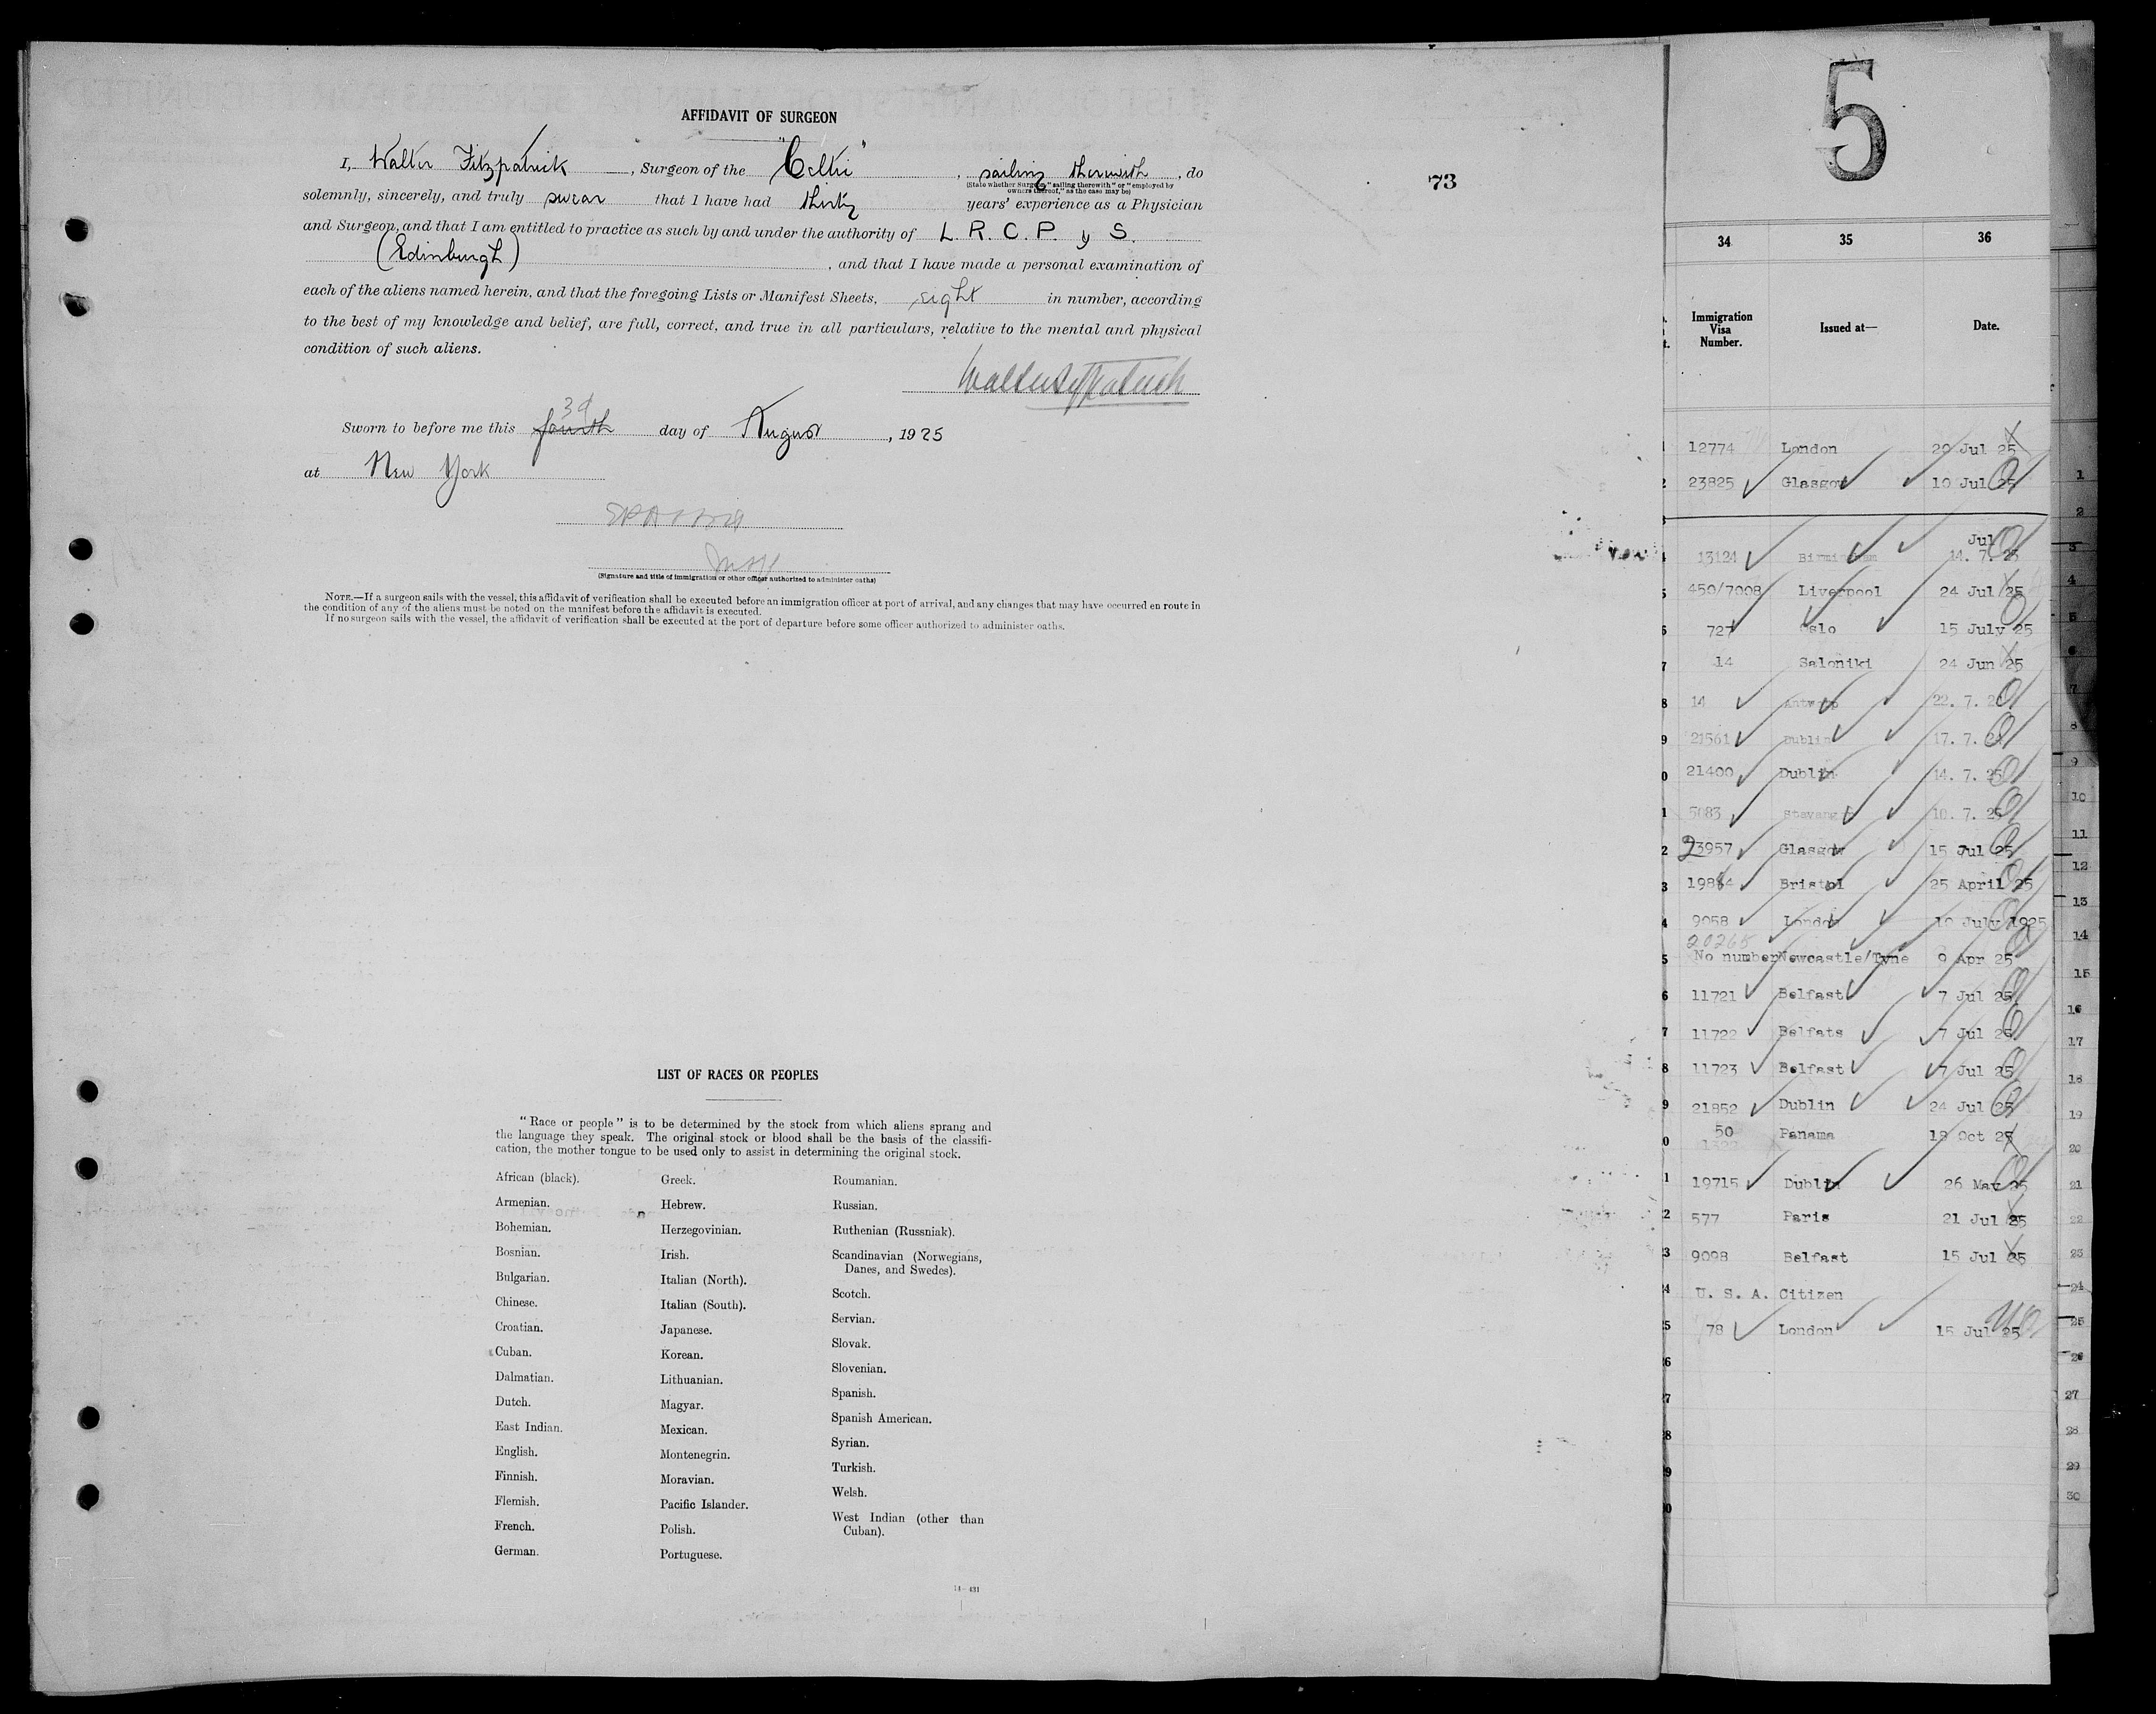 AFFIDAVIT OF SURGEON
I, Walter Fitzpatrick, Surgeon of the "Celtic", sailing therewith, do
(State whether Surgeon "sailing therewith" or "employed by
owners thereof," as the case may be)
solemnly, sincerely, and truly swear that I have had thirty years' experience as a Physician
and Surgeon, and that I am entitled to practice as such by and under the authority of L. R. C. P. & S.
(Edinburgh), and that I have made a personal examination of
each of the aliens named herein, and that the foregoing Lists or Manifest Sheets, eight in number, according
to the best of my knowledge and belief, are full, correct, and true in all particulars, relative to the mental and physical
condition of such aliens.
Walter Fitzpatrick
3d
Sworn to before me this fourth day of August, 1925
at New York
(Signature and title of immigration or other officer authorized to administer oaths)
NOTE.—If a surgeon sails with the vessel, this affidavit of verification shall be executed before an immigration officer at port of arrival, and any changes that may have occurred en route in
the condition of any of the aliens must be noted on the manifest before the affidavit is executed.
If no surgeon sails with the vessel, the affidavit of verification shall be executed at the port of departure before some officer authorized to administer oaths.
73
LIST OF RACES OR PEOPLES
"Race or people" is to be determined by the stock from which aliens sprang and
the language they speak. The original stock or blood shall be the basis of the classifi-
cation, the mother tongue to be used only to assist in determining the original stock.
African (black).
Armenian.
Bohemian.
Bosnian.
Bulgarian.
Chinese.
Croatian.
Cuban.
Dalmatian.
Dutch.
East Indian.
English.
Finnish.
Flemish.
French.
German.
Greek.
Hebrew.
Herzegovinian.
Irish.
Italian (North).
Italian (South).
Japanese.
Korean.
Lithuanian.
Magyar.
Mexican.
Montenegrin.
Moravian.
Pacific Islander.
Polish.
Portuguese.
Roumanian.
Russian.
Ruthenian (Russniak).
Scandinavian (Norwegians,
Danes, and Swedes).
Scotch.
Servian.
Slovak.
Slovenian.
Spanish.
Spanish American.
Syrian.
Turkish.
Welsh.
West Indian (other than
Cuban).
14—431
5
34 35 36
Immigration
Visa
Number.
Issued at—
Date.
12774 London 20 Jul 25
23825 Glasgow 10 Jul 25
Jul
13124 Birmingham 14. 7. 25
450/7008 Liverpool 24 Jul 25
727 Oslo 15 July 25
14 Saloniki 24 Jun 25
14 Antwerp 22. 7.
21561 Dublin 17. 7.
21400 Dublin 14. 7. 25
5083 Stavanger 10. 7. 25
23957 Glasgow 15 Jul 25
19884 Bristol 25 April 25
9058 London 10 July 1925
20265
No number Newcastle/Tyne 9 Apr 25
11721 Belfast 7 Jul 25
11722 Belfats 7 Jul 25
11723 Belfast 7 Jul 25
21852 Dublin 24 Jul 25
50 Panama 18 Oct
19715 Dublin 26 May 25
577 Paris 21 Jul 25
9098 Belfast 15 Jul 25
U. S. A. Citizen
78 London 15 Jul 25
1
2
3
4
5
6
7
8
9
10
11
12
13
14
15
16
17
18
19
20
21
22
23
24
25
26
27
28
29
30